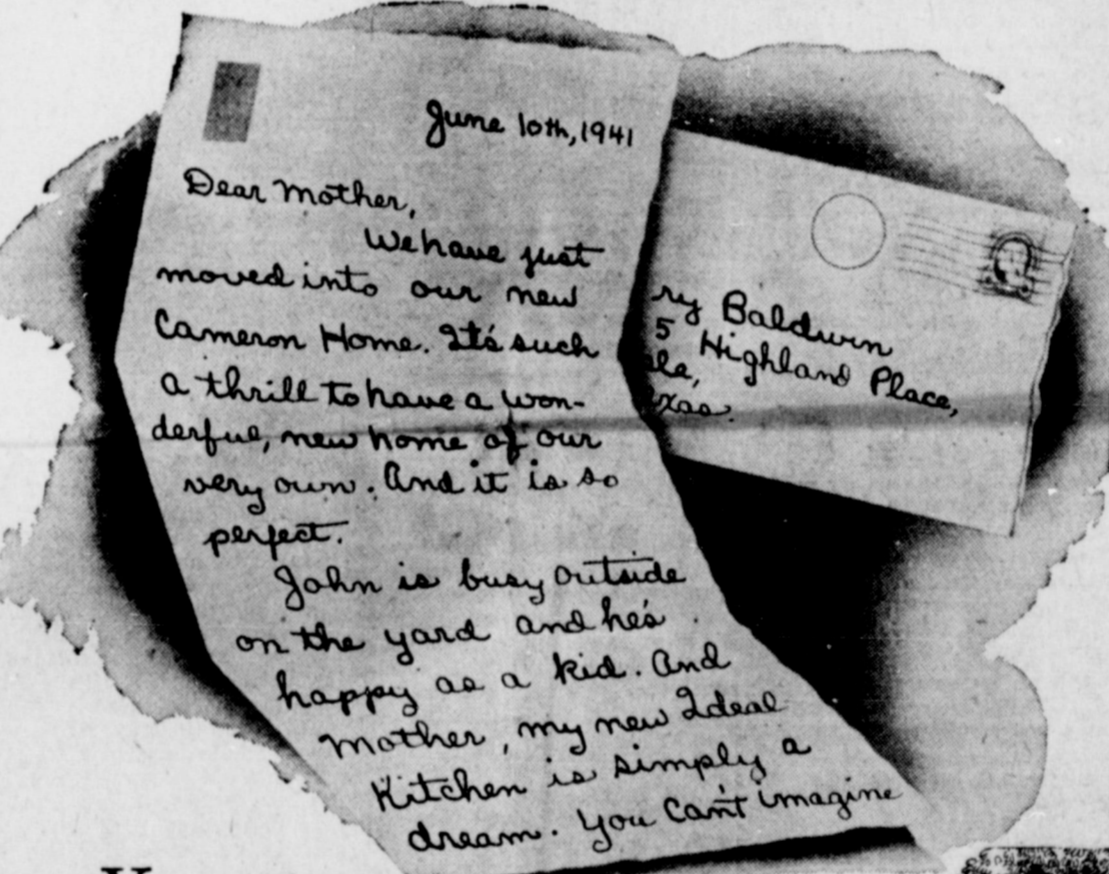 June 10th, 1941
Dear Mother,
We have just
moved into our new
Cameron Home. It's such
a thrill to have a won-
derful, new home of our
very own. And it is so
perfect.
John is busy outside
on the yard and he's
happy as a kid. And
Mother, my new Ideal
Kitchen is simply a
dream. You can't imagine
ry Baldwin
5 Highland Place,
la,
xas.